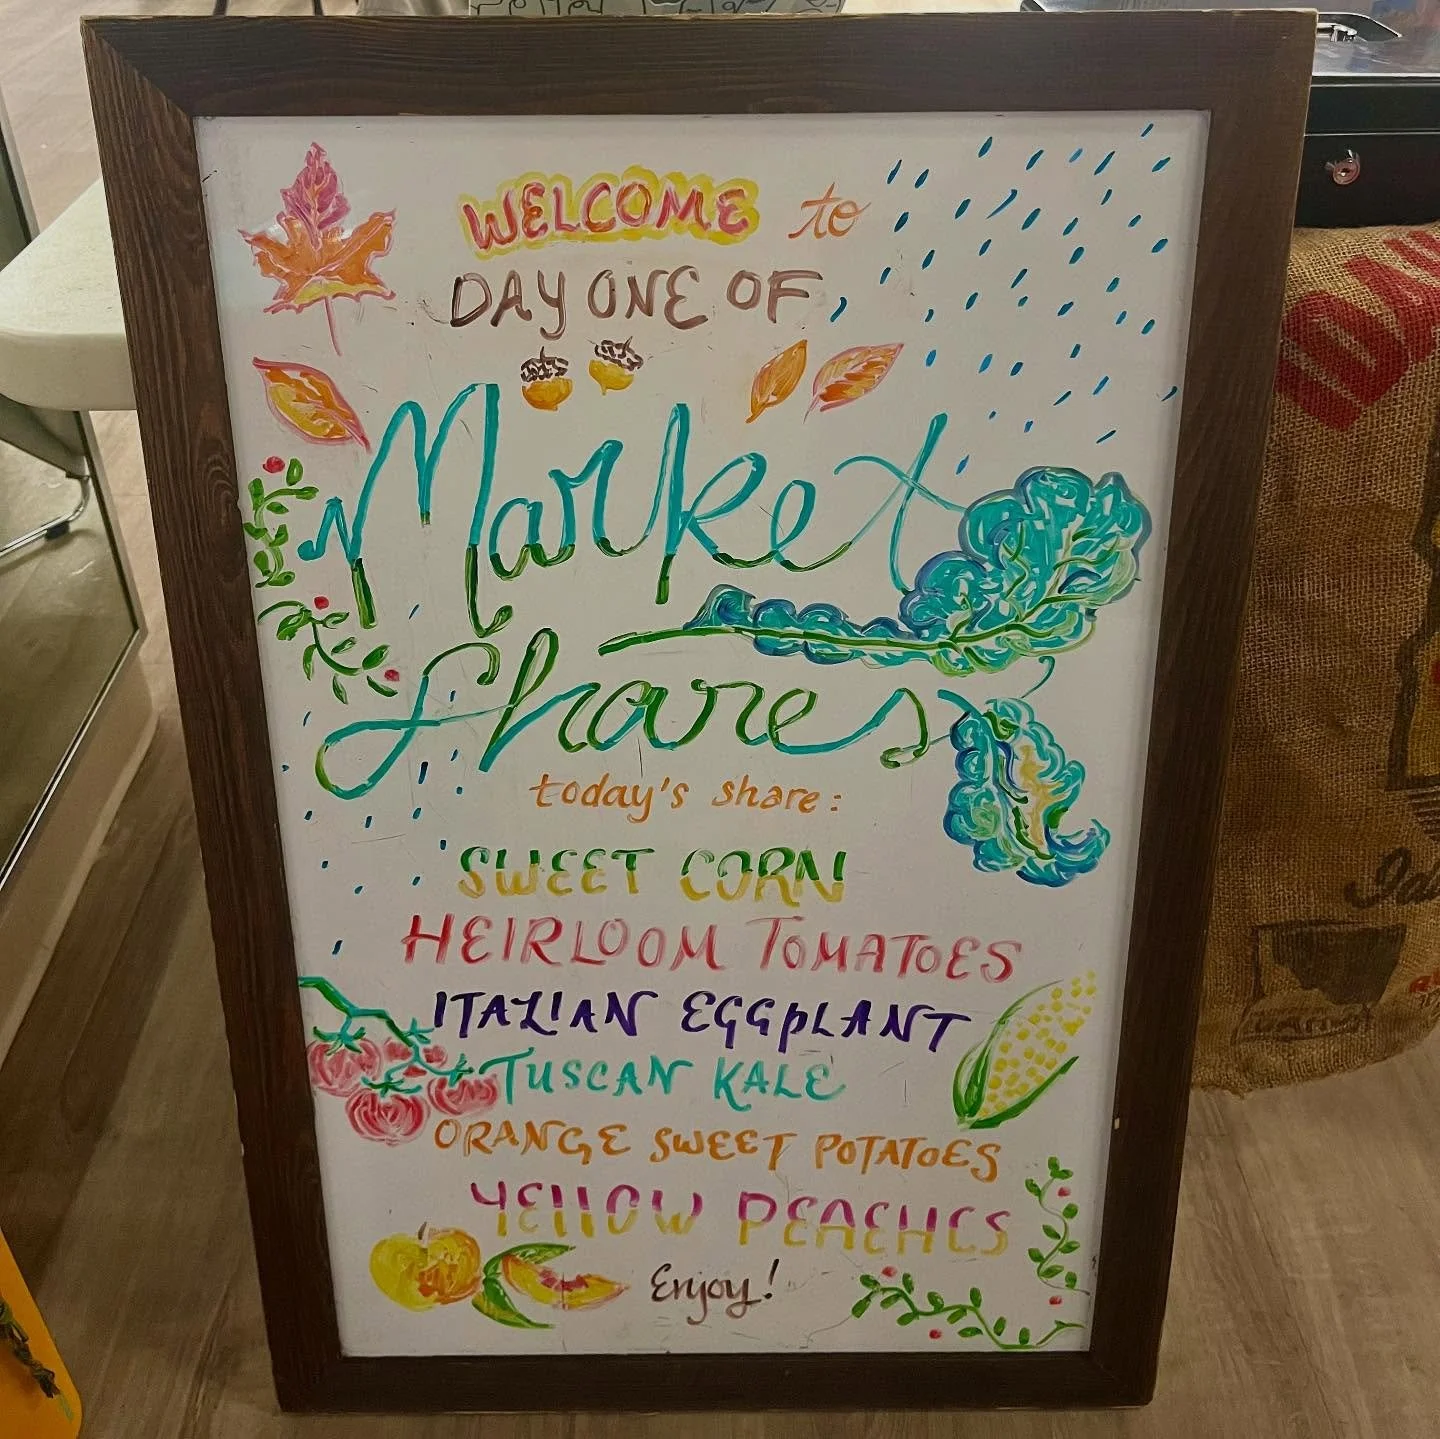 WELCOME to
DAY ONE OF
Market
Shares
today's share:
SWEET CORN
HEIRLOOM TOMATOES
ITALIAN EGGPLANT
TUSCAN KALE
ORANGE SWEET POTATOES
YELLOW PEACHES
Enjoy!